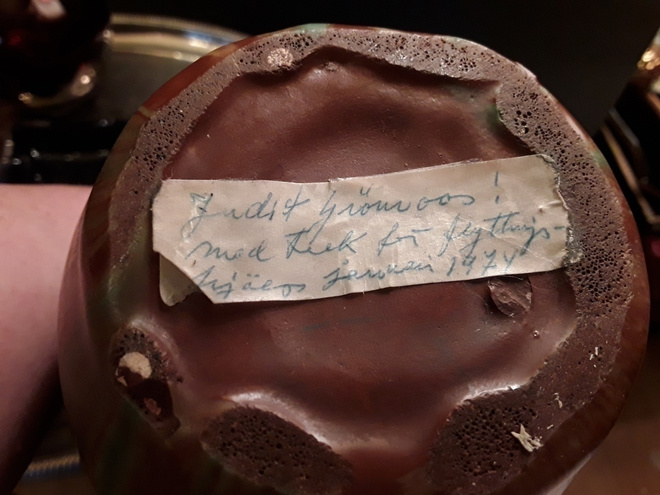 Judit Grönroos!
med tack för flyttnings-
hjälp januari 1974